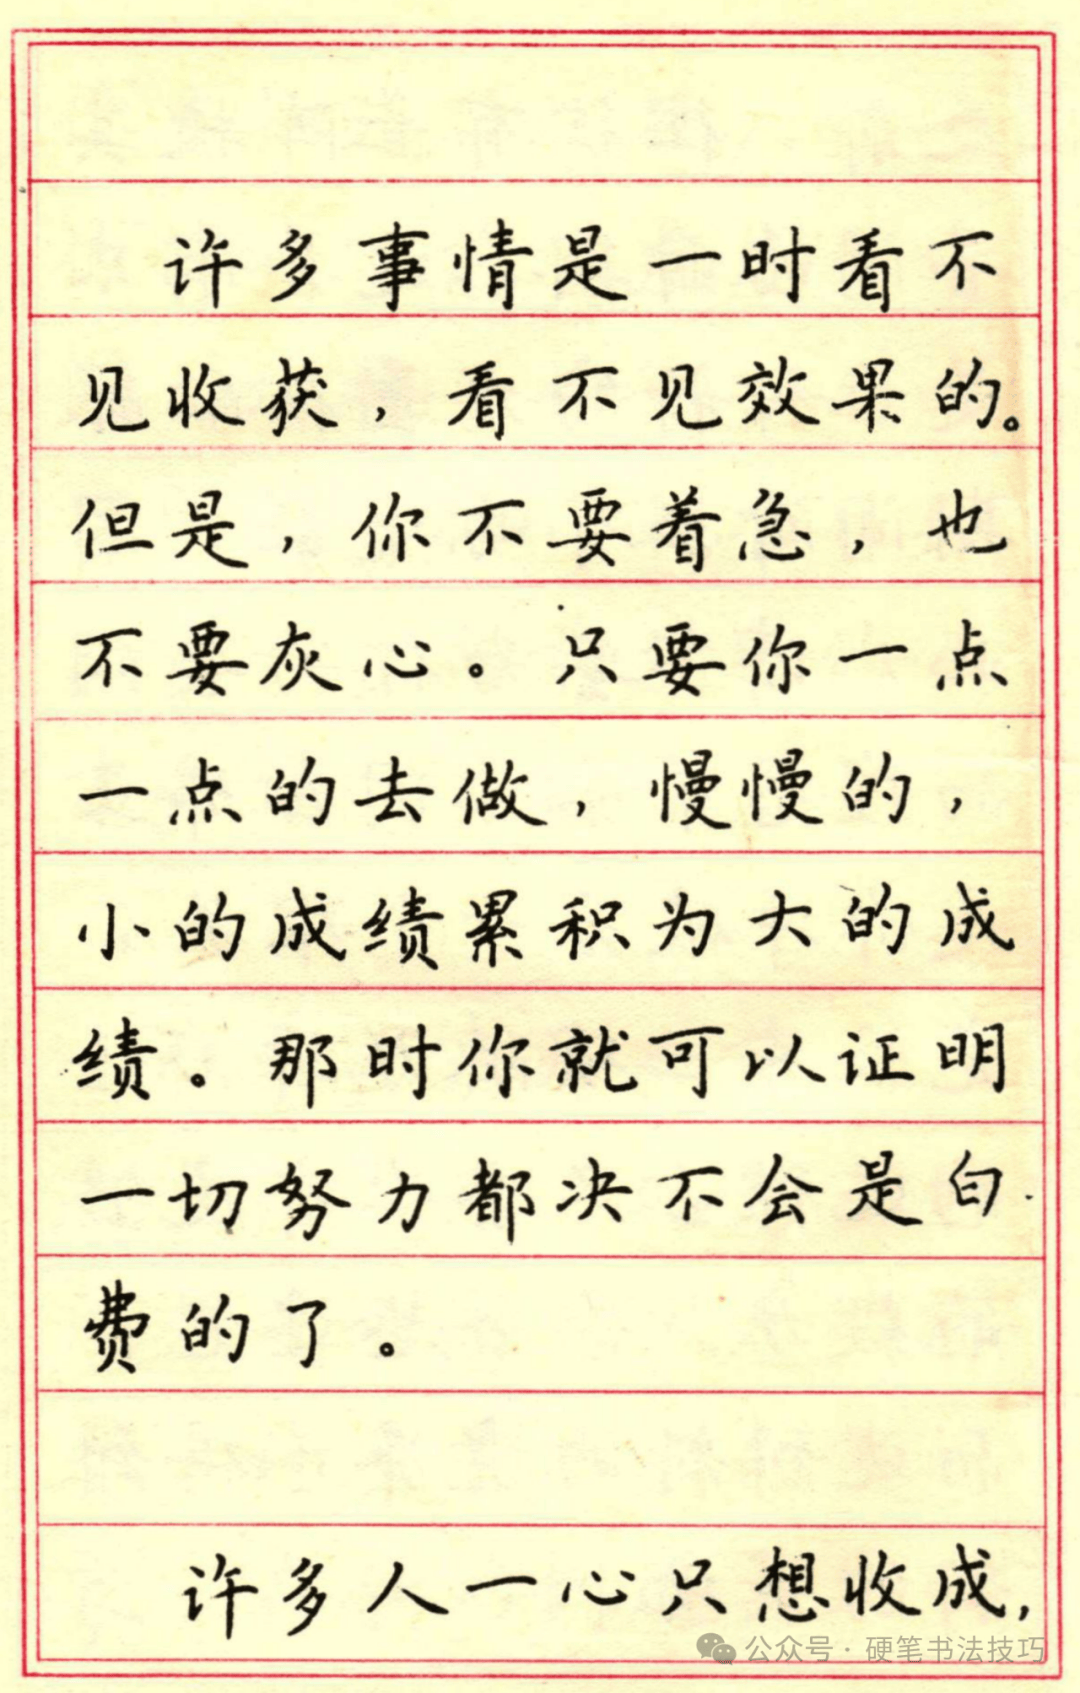 许多事情是一时看不
见收获，看不见效果的。
但是，你不要着急，也
不要灰心。只要你一点
一点的去做，慢慢的，
小的成绩累积为大的成
绩。那时你就可以证明
一切努力都决不会是白
费的了。
许多人一心只想收成，
公众号·硬笔书法技巧